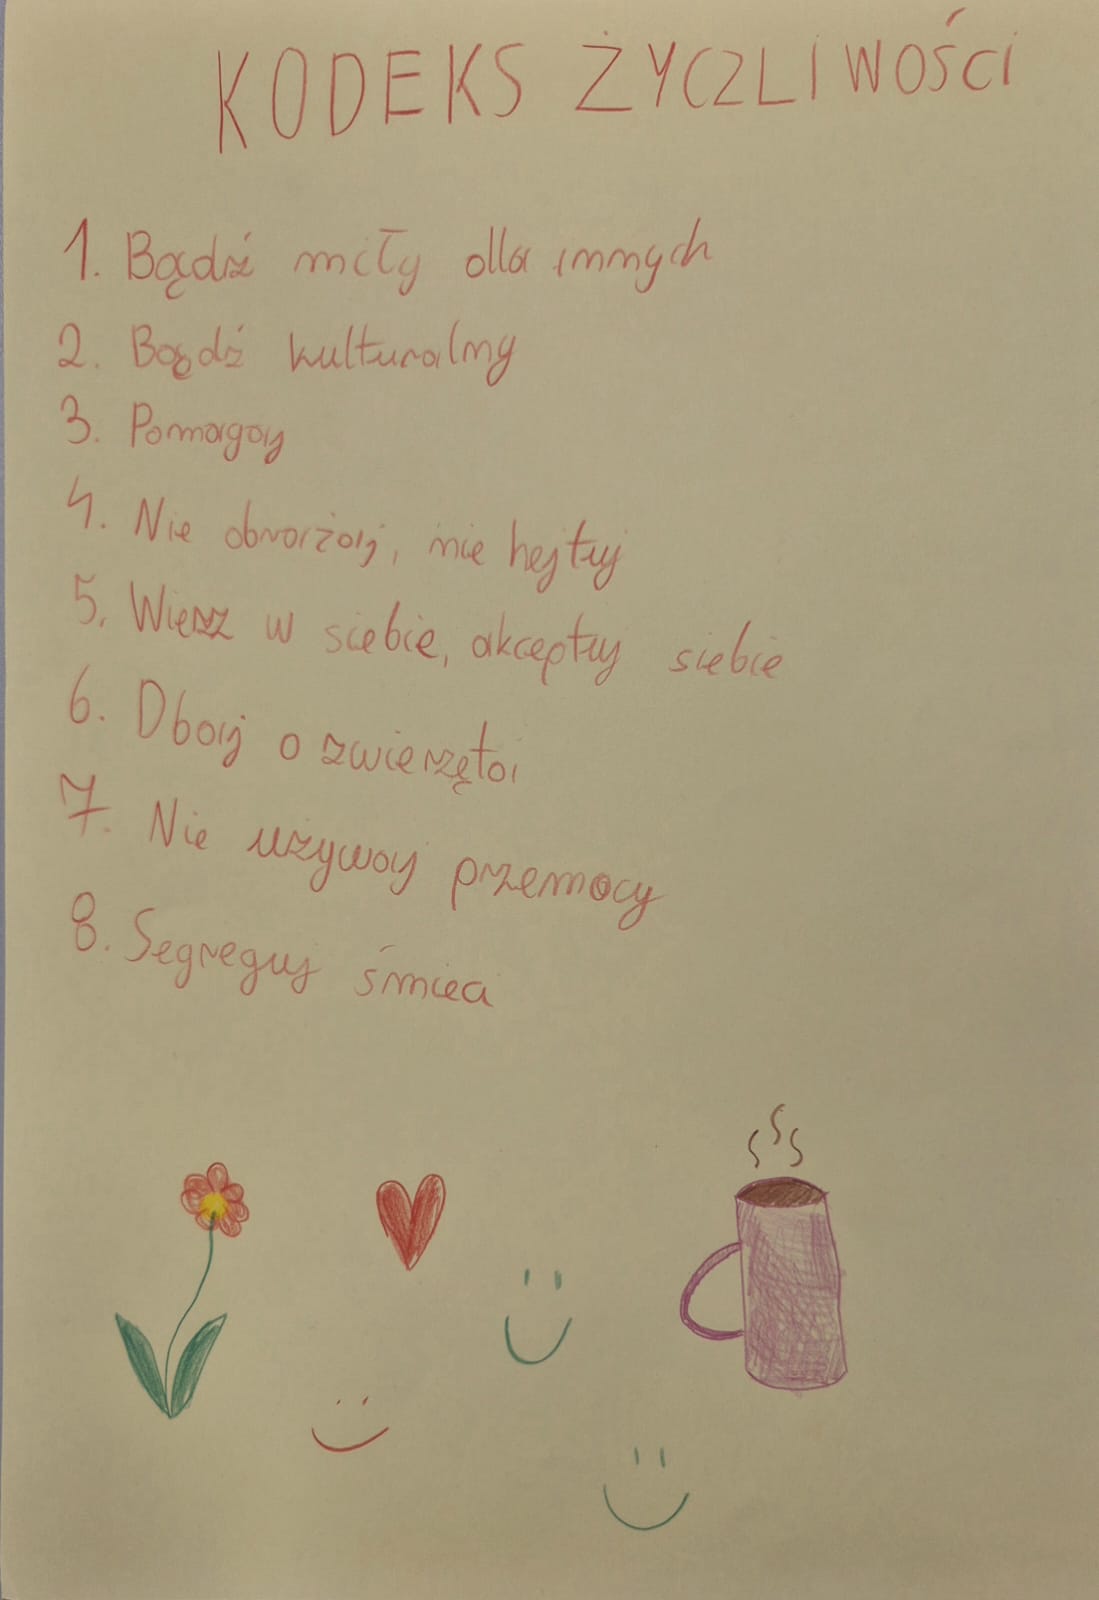 KODEKS ŻYCZLIWOŚCI
1. Bądź miły dla innych
2. Bądź kulturalny
3. Pomagaj
4. Nie obrażaj, nie hejtuj
5. Wierz w siebie, akceptuj siebie
6. Dbaj o zwierzęta
7. Nie używaj przemocy
8. Segreguj śmieci